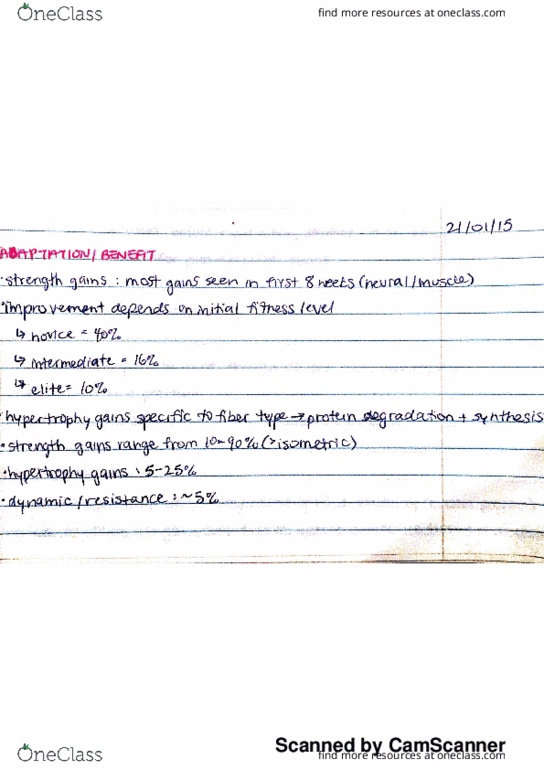 OneClass find more resources at oneclass.com
21/01/15
ADAPTATION/BENEFIT
·strength gains : most gains seen in first 8 weeks (neural/muscle)
·improvement depends on initial fitness level
↳ novice = 40%
↳ intermediate = 16%
↳ elite = 10%
·hypertrophy gains specific to fiber type → protein degradation + synthesis
·strength gains range from 10-90% (>isometric)
·hypertrophy gains : 5-25%
·dynamic/resistance : ~5%
Scanned by CamScanner
OneClass find more resources at oneclass.com